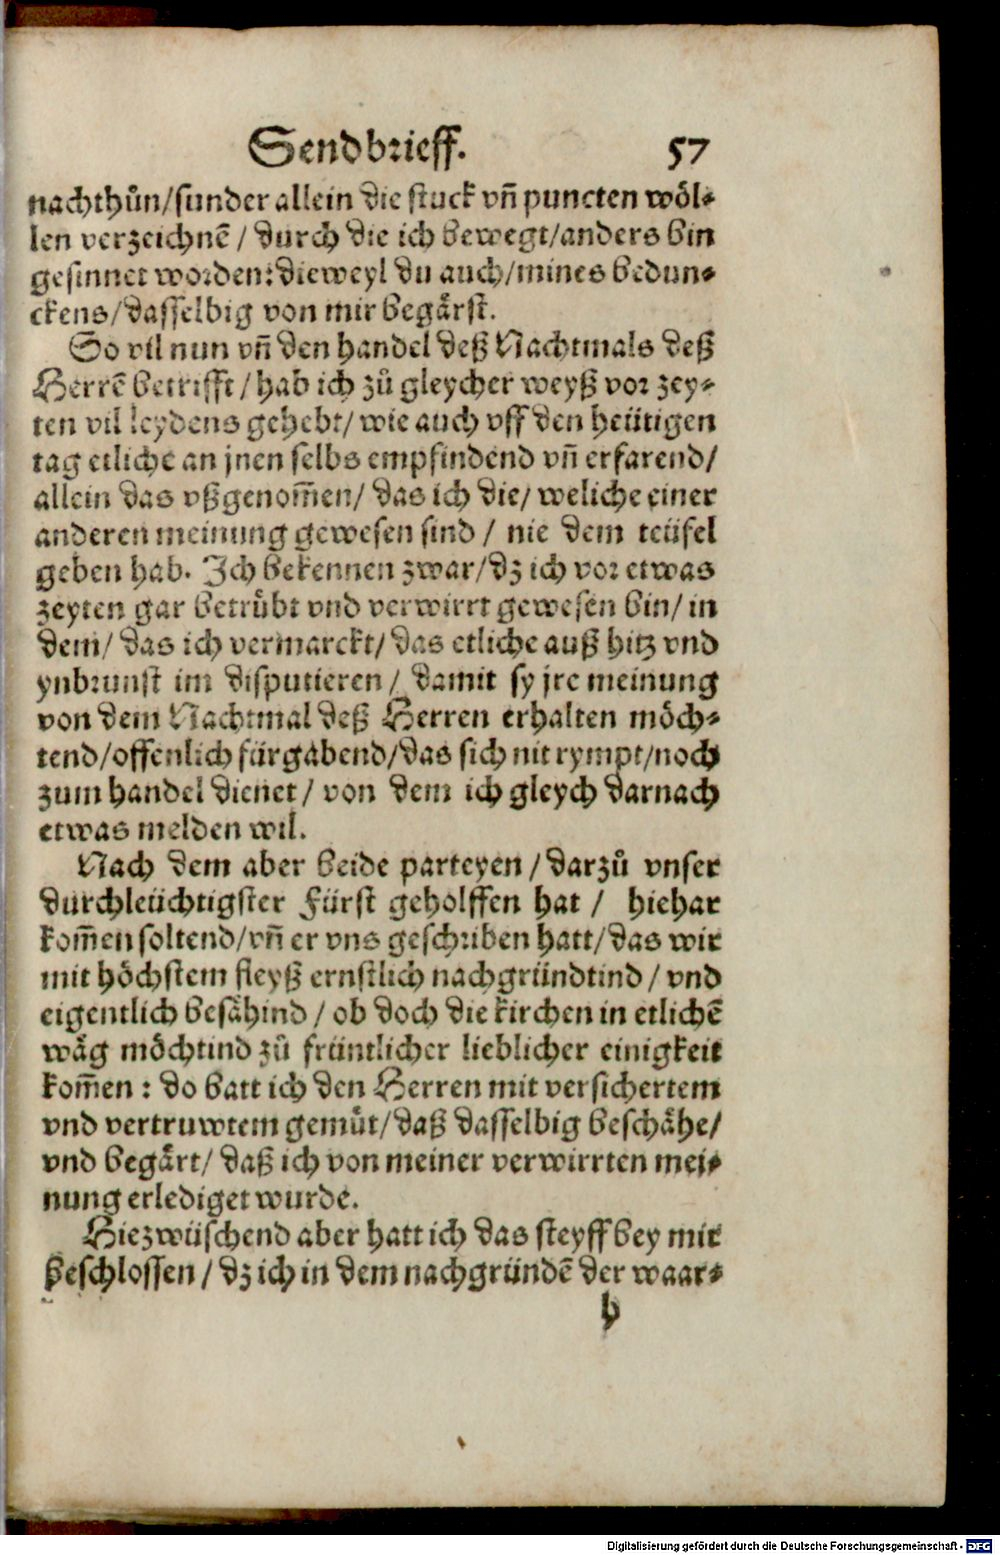 Sendbrieff. 57
nachthůn/sunder allein die stuck vñ puncten wöl⸗
len verzeichnẽ / durch die ich bewegt/anders bin
gesinnet worden: dieweyl du auch/mines bedun⸗
ckens/dasselbig von mir begärst.
So vil nun vñ den handel deß Nachtmals deß
Herrẽ betrifft / hab ich zů gleycher weyß vor zey⸗
ten vil leydens gehebt/ wie auch vff den heütigen
tag etliche an jnen selbs empfindend vñ erfarend/
allein das vßgenom̃en/ das ich die/ weliche einer
anderen meinung gewesen sind / nie dem teüfel
geben hab. Ich bekennen zwar/dz ich vor etwas
zeyten gar betrůbt vnd verwirrt gewesen bin/ in
dem/ das ich vermarckt/ das etliche auß hitz vnd
ynbrunst im disputieren / damit sy jre meinung
von dem Nachtmal deß Herren erhalten möch⸗
tend/offenlich fürgabend/das sich nit rympt/noch
zum handel dienet/ von dem ich gleych darnach
etwas melden wil.
Nach dem aber beide parteyen / darzů vnser
durchleüchtigster Fürst geholffen hat / hiehar
kom̃en soltend/vñ er vns geschriben hatt/das wir
mit höchstem fleyß ernstlich nachgründtind / vnd
eigentlich besähind / ob doch die kirchen in etlichẽ
wäg möchtind zů früntlicher lieblicher einigkeit
kom̃en : do batt ich den Herren mit versichertem
vnd vertruwtem gemůt/daß dasselbig beschähe/
vnd begärt/ daß ich von meiner verwirrten mei⸗
nung erlediget wurde.
Hiezwüschend aber hatt ich das steyff bey mir
beschlossen / dz ich in dem nachgründẽ der waar⸗
h
Digitalisierung gefördert durch die Deutsche Forschungsgemeinschaft - DFG